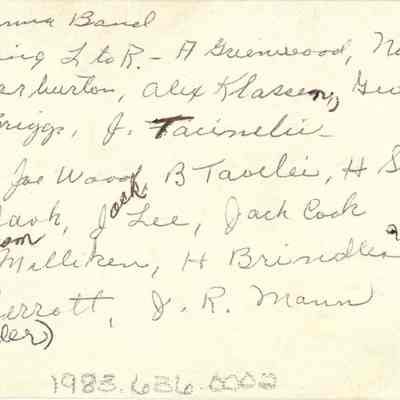 Band
ing L to R. - A Greenwood, No
arburton, Alex Klassen, Geo
riggs, J.
Joe Wood, B H S
J Jack Lee, Jack Cook
om
Milliken, H Brindle
errott, J. R. Mann
ler)
1983.636.0002